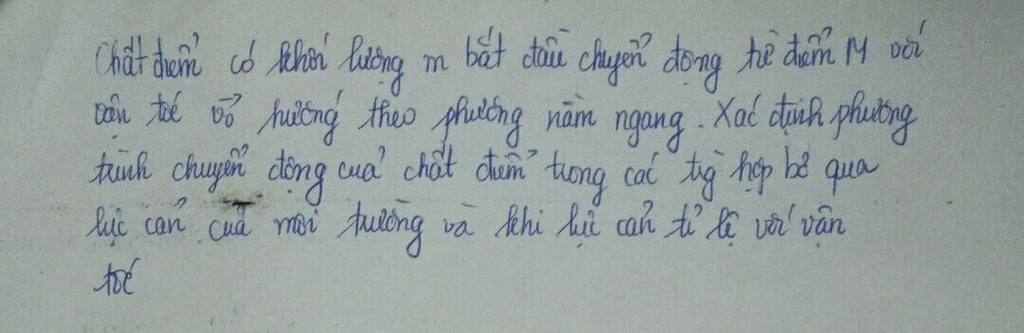 Chất điểm có khối lượng m bắt đầu chuyển động từ điểm M với
vận tốc v₀ hướng theo phương nằm ngang. Xác định phương
trình chuyển động của chất điểm trong các trg hợp bỏ qua
lực cản của môi trường và khi lực cản tỉ lệ với vận
tốc